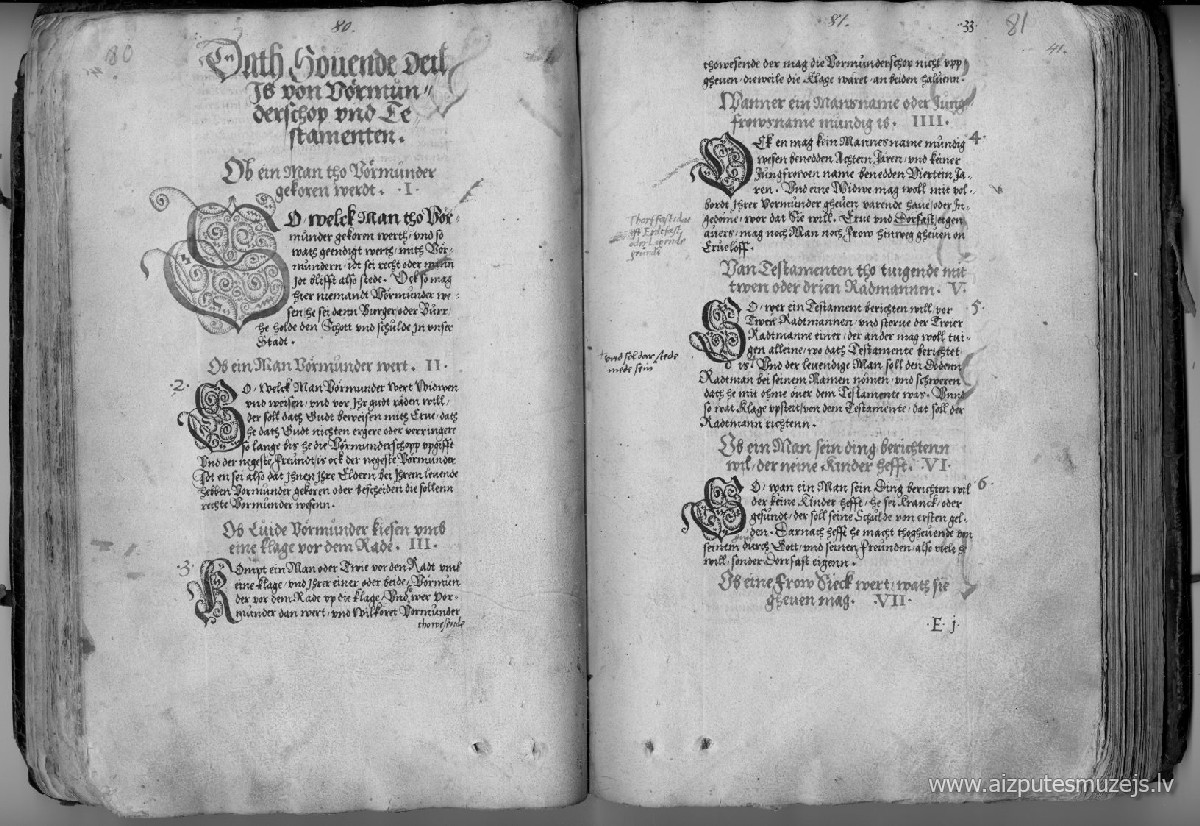 80.
80
Dath Söuende Deil
Is von Vörmün„
derschop vnd Te
stamenten.
Ob ein Man tho Vörmünder
gekoren werdt. I.
SO welck Man tho Vör-
münder gekoren werth, vnd so
wath geendigt werth, mith Vör-
mündern, idt sei recht oder
bleffft also stede. Ock so mag
hier niemandt Vörmünder we-
sen he sei denn Burger oder Burr
he holde den Schott vnd schulde In vnser
Stadt.
Ob ein Man Vörmünder wert. II.
2.
SO welck Man Vörmunder wert Widwen
vnd weisen, vnd vor Ihr gudt raden will,
der soll dath Gudt bereisen mith Erue, dath
he dath Gudt nichten ergere oder verringere
so lange bis he die Vörmünderschopp vpgifft
Vnd der negeste Freündt is ock der negeste Vörmünder
Idt en sei also dat Ihnen Ihre Eldern, bei Ihrem leuende
Vörmünder gekoren oder bescheiden die sollenn
rechte Vörmünder wesenn.
Ob Lüide Vörmünder kiesen vmb
eine klage vor dem Rade. III.
3.
Kompt ein Man oder Twie vor den Radt vmb
eine klage, vnd Ihrer einer oder beide, Vörmün
der vor dem Rade vp die klage, Vnd wer Vor-
münder dan wert, vnd Wilkoret Vörmünder
thowesende
81.
33
81
41.
thowesende der mag die Vormünderschop nicht vpp
gheuen, dieweile die Klage waret, an beiden haluenn.
Wanner ein Mansname oder Jung
frowsname mündig is. IIII.
4.
Eck en mag kein Mannesname mündig
wesen benedden Achtein Jaren, vnd keiner
Jungfrowen name benedden Viertein Ja-
ren. Vnd eine Widwe mag woll mit vol-
borde Ihrer Vormünder gheuen varende haue, oder In-
gedöme, wor dat Sie will. Erue vnd Dorfast eigen
auers, mag noch Man noch Frow henweg gheuen on
Erueloff.
Van Testamenten tho tuigende mit
twen oder drien Radmannen. V.
5.
SO wer ein Testament berichten will, vor
Twen Radtmannen, vnd storue der Twier
Radtmanne einer, der ander mag woll tui-
gen alleine, wo dath Testamente berichtet
is. Vnd der leuendige Man soll den Dodenn
Radtman bei seinem Namen nömen, vnd schweren
dath he mit ohme öuer dem Testamente was. Vnnd
so wat Klage vpsteit, von dem Testamente, dat soll der
Radtmann richtenn.
vnd sol dem rede
mede sein
Ob ein Man sein ding berichtenn
wil, der neine Kinder hefft. VI.
6.
SO wan ein Man sein Ding berichten wil
der keine Kinder hefft, he sei Kranck, oder
gesundt, der soll seine Schulde von ersten gel-
den. Darnach hefft he macht thogheuende von
seinem durch Gott, vnd seinen Freünden, also viele he
will, sonder Dorffast eigenn.
Ob eine Frow Sieck wert, wath sie
gheuen mag. VII.
E j
www.aizputesmuzejs.lv